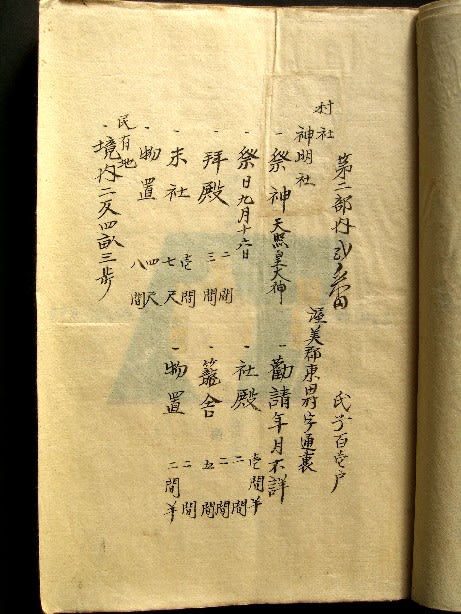 第二部内弐番
氏子百壱戸
渥美郡東田村字通裏
村社
神明社
一祭神 天照皇大神
一勧請年月不詳
一祭日九月十六日
一社殿 壱間半 二間
一拝殿 二間 三間
一籠舎 二間 五間
一末社 壱間 七尺
一物置 二間 二間半
一物置 四尺 八間
民有地
一境内二反四畝三歩